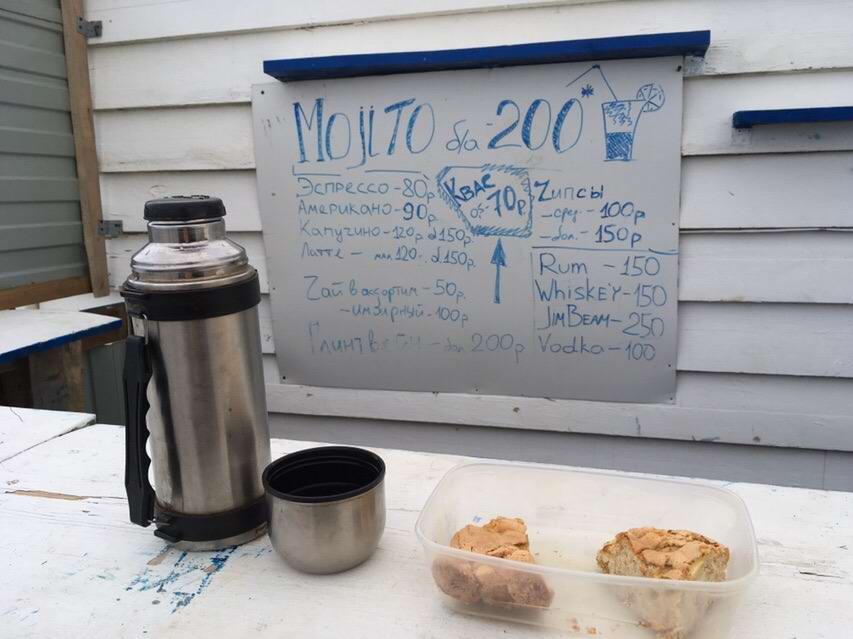 MOJITO б/а - 200*
Эспрессо - 80р.
Американо - 90р
Капучино - 120р d150р.
Латте - мал 120р. d150р.
Чай в ассортим - 50р.
- имбирный - 100р
Глинтвейн - 200р
Квас
0,5 - 70р
Чипсы
- сред. - 100р
- бол. - 150р
Rum - 150
WHISKEY - 150
JIM BEAM - 250
Vodka - 100